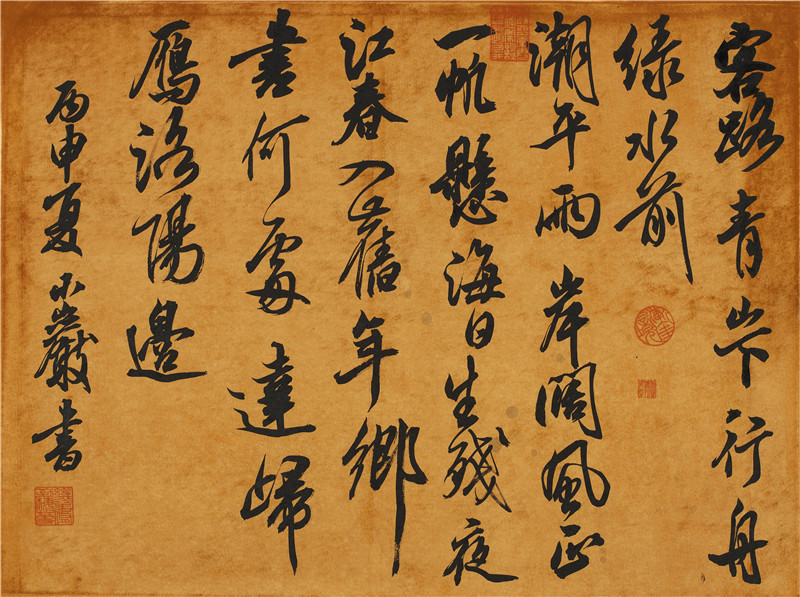 客路青山下行舟
绿水前
潮平兩岸闊風正
一帆懸海日生殘夜
江春入舊年鄉
書何處達歸
鴈洛陽邊
丙申夏小嚴書